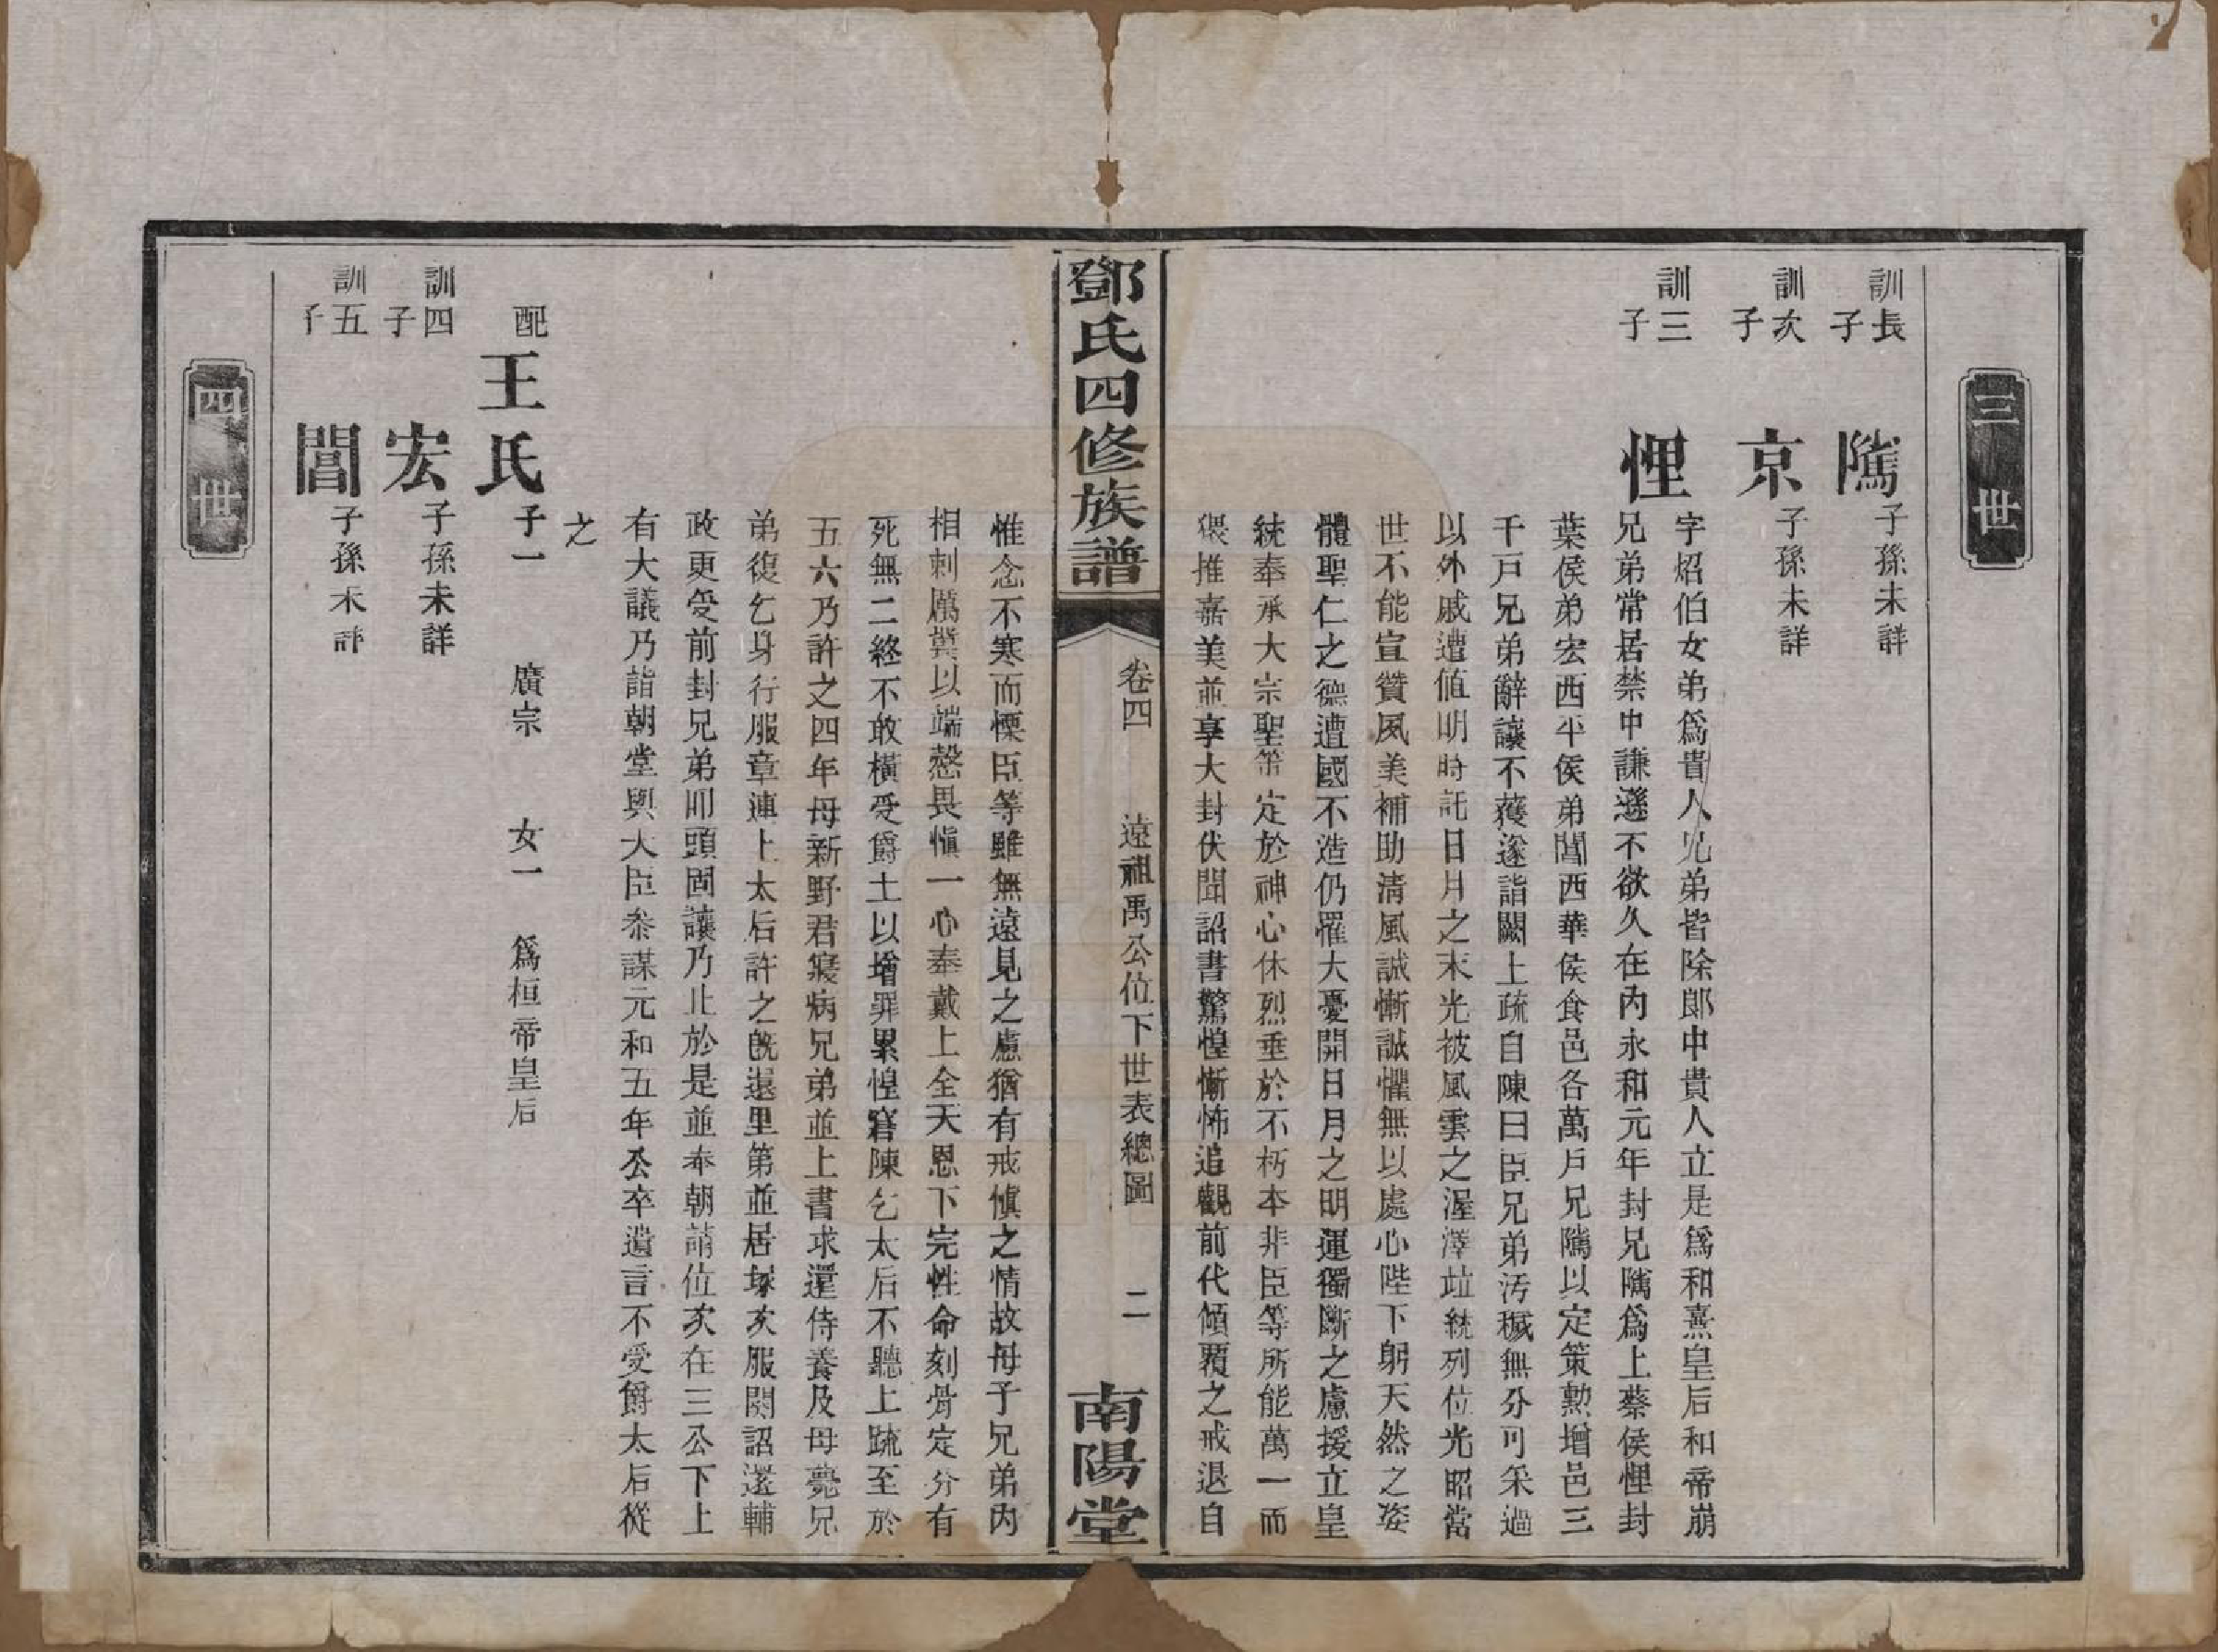 三世
訓長子 隲 子孫未詳
訓次子 京 子孫未詳
訓三子 悝 字焰伯女弟爲貴人兄弟皆除郞中貴人立是爲和熹皇后和帝崩
兄弟常居禁中謙遜不欲久在內永和元年封兄隲爲上蔡侯悝封
葉侯弟宏西平侯弟閶西華侯食邑各萬戶兄隲以定策勲增邑三
千戸兄弟辭讓不獲遂詣闕上疏自陳曰臣兄弟汚穢無分可采過
以外戚遭値明時託日月之末光被風雲之渥澤竝統列位光昭當
世不能宣贊風美補助淸風誠慚誠懼無以處心陛下躬天然之姿
體聖仁之德遭國不造仍罹大憂開日月之明運獨斷之慮援立皇
統奉承大宗聖策定於神心休烈垂於不朽本非臣等所能萬一而
猥推嘉美並享大封伏聞詔書驚惶慚怖追觀前代傾覆之戒退自
鄧氏四修族譜 卷四 遠祖禹公位下世表總圖 二 南陽堂
惟念不寒而慄臣等雖無遠見之慮猶有戒愼之情故母子兄弟內
相刺厲冀以端慤畏愼一心奉戴上全天恩下完性命刻骨定分有
死無二終不敢橫受爵土以增罪累惶窘陳乞太后不聽上疏至於
五六乃許之四年母新野君寢病兄弟並上書求還侍養及母薨兄
弟復乞身行服章連上太后許之旣還里第並居塚次服闋詔還輔
政更受前封兄弟叩頭固讓乃止於是並奉朝請位次在三公下上
有大議乃詣朝堂與大臣叅謀元和五年公卒遺言不受爵太后從
之
配 王氏 子一 廣宗 女一 爲桓帝皇后
訓四子 宏 子孫未詳
訓五子 閶 子孫未詳
四世